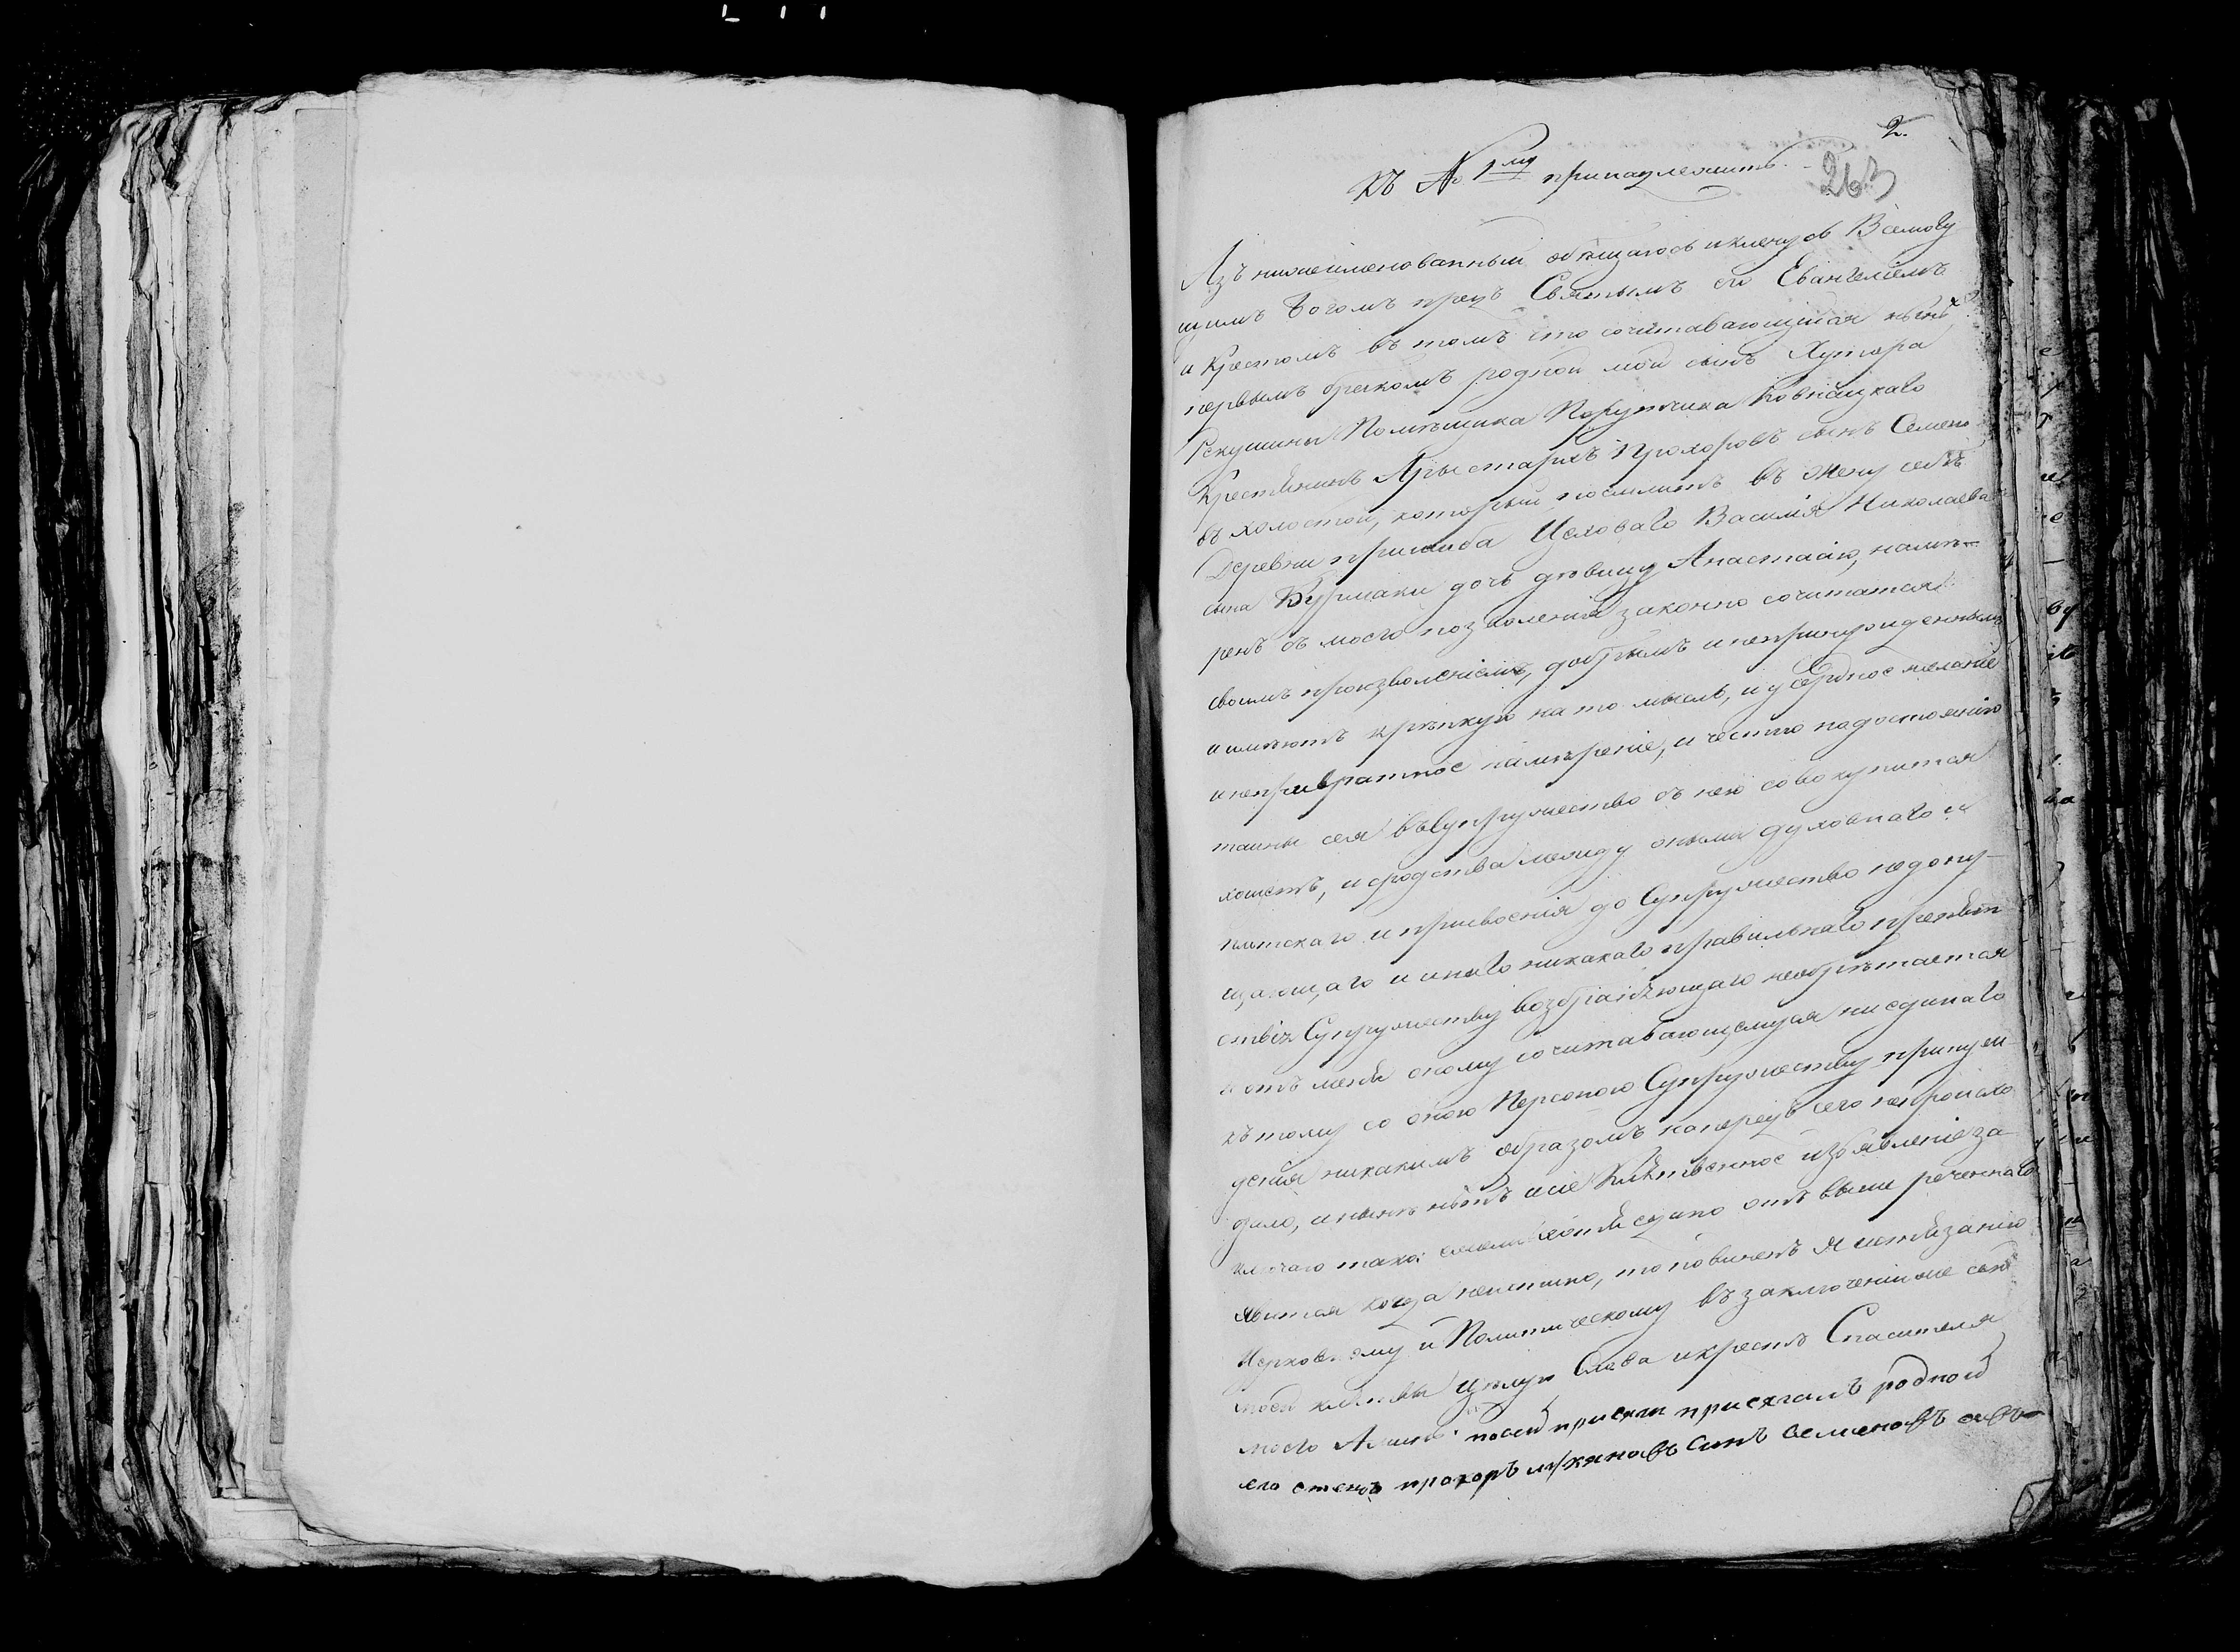 2.
Къ № 1му принадлежитъ.
263
Азъ нижеименованный обѣщаюсь и кленусь Всемогу
щимъ Богомъ предъ Святымъ его Евангелиемъ
и Крестомъ въ томъ что сочитавающийся
первымъ бракомъ родной мой сынъ Хутора
Помѣщика Порутчика
Крестянинъ Аристархъ Прохоровъ сынъ Семено
въ холостой, который поемлитъ въ жену себѣ
Деревни Василия Николаева
сына дочь дѣвицу Анастасию, намѣ-
ренъ съ моего позволения законно сочитатся
своимъ произволениемъ, добрымъ и непринужденнымъ
и имѣютъ крѣпкую на то мысль, и усердное желание
и непривратное намѣрение, и честно по достоянию
таины сея въ Супружество съ нею совокупится
хощетъ, и сродства между оными духовнаго и
плотскаго и приводения до Супружества недопу-
щающаго и инаго никакаго правильнаго препят
ствия Супружеству необрѣтается
и отъ меня оному сочитавающемуся ниединаго
къ тому со оною Персоною Супружеству принуж
дения никакимъ образомъ напередъ сего непроисхо
дило, и нынѣ нѣтъ и сие Клятвенное за
ключаю тако: отъ выше реченнаго
явится когда неистино, то повиненъ я истязанию
Церковному и Политическому въ заключении же сея
моея клятвы цѣлую Слова и крестъ Спасителя
моего Аминь. по сей присяги присягалъ родной
его отецъ прохоръ синъ семеновъ